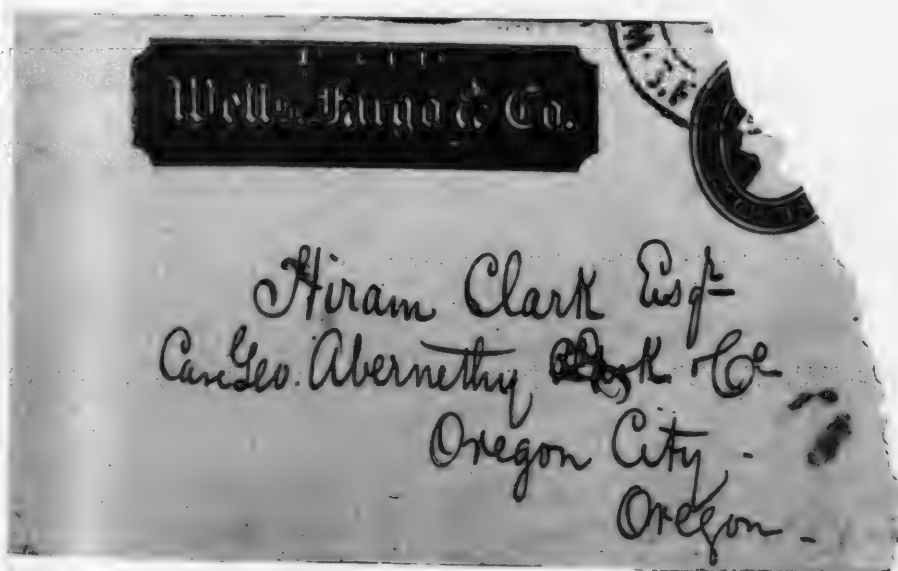 Wells, Fargo & Co.
Hiram Clark Esqr
Care Geo. Abernethy & Co
Oregon City
Oregon